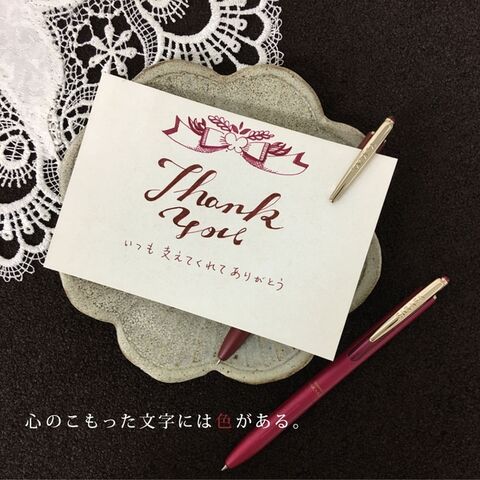 Thank
you
いつも支えてくれてありがとう
心のこもった文字には色がある。